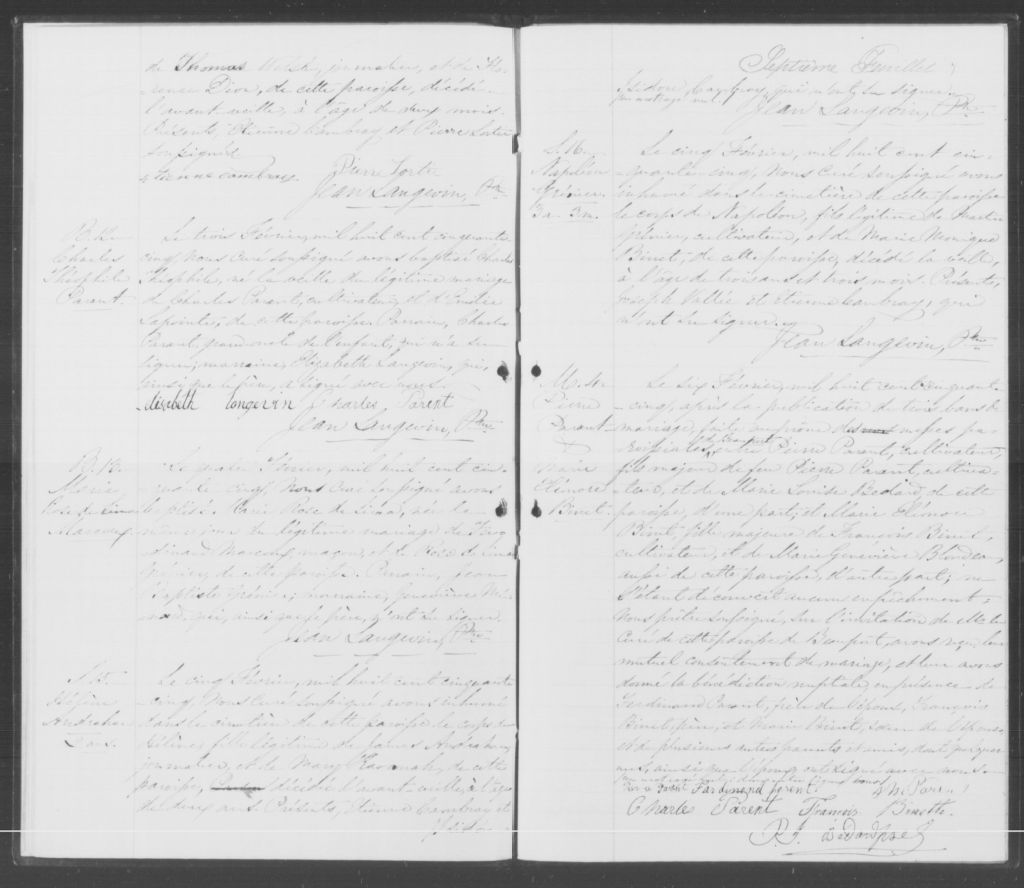 de Thomas Welsh, journalier, et de Flo-
rence Dion, de cette paroisse, décédé
l'avant veille, à l'âge de deux mois.
Présents, Etienne Cambray et Pierre Fortier
soussignés
Etienne Cambray Pierre Fortier
Jean Langevin, Ptre
B. 12
Charles
Théophile
Parant
Le trois Février, mil huit cent cinquante
cinq, Nous Curé soussigné avons baptisé Charles
Théophile, né la veille du légitime mariage
de Charles Parant, cultivateur, et d'Emilie
Lapointe, de cette paroisse. Parrain, Charles
Parant, grand oncle de l'enfant, qui n'a su
signer; marraine, Elizabeth Langevin, qui,
ainsi que le père, a signé avec nous.
Elisebeth Longevin Charles Parent
Jean Langevin, Ptre
B. 13
Marie
Rose de Lima
Marcoux
Le quatre Février, mil huit cent cin-
quante cinq, Nous Curé soussigné avons
baptisé Marie Rose de Lima, née le
même jour du légitime mariage de Fer-
dinand Marcoux, maçon, et de Rose de Lima
Grénier, de cette paroisse. Parrain, Jean
Baptiste Grénier; marraine, Geneviève
qui, ainsi que le père, n'ont su signer.
Jean Langevin, Ptre
Hélène
2 ans.
Le cinq Février, mil huit cent cinquante
cinq, Nous Curé soussigné avons inhumé
dans le cimetière de cette paroisse le corps de
Hélène, fille légitime de James
journalier, et de Mary Kavanah, de cette
paroisse, décédée l'avant-veille, à l'âge
de deux ans. Présents, Etienne Cambray et
Isidore
Septième Feuillet
Isidore Cambray, qui n'ont su signer.
Jean Langevin, Ptre
Napoléon
Grénier
3 a. 3 m.
Le cinq Février, mil huit cent cin-
quante cinq, Nous Curé soussigné avons
inhumé dans le cimetière de cette paroisse
le corps de Napoléon, fils légitime de Martin
Grénier, cultivateur, et de Marie Monique
Binet, de cette paroisse, décédé la veille,
à l'âge de trois ans et trois mois. Présents,
Joseph Vallée et Etienne Cambray, qui
n'ont su signer.
Jean Langevin, Ptre
Pierre
Parant
&
Marie
Elémore
Binet
Le six Février, mil huit cent cinquante
cinq, après la publication de trois bans de
mariage, faite aux prône des messes pa-
roissiales, de Beauport entre Pierre Parant, cultivateur,
fils majeur de feu Pierre Parant, cultiva-
teur, et de Marie Louise Bedard, de cette
paroisse, d'une part; et Marie Elémore
Binet, fille majeure de François Binet,
cultivateur, et de Marie Geneviève Blondeau,
aussi de cette paroisse, d'autre part; ne
s'étant découvert aucun empêchement;
Nous prêtre soussigné, sur l'invitation de M. le
Curé de cette paroisse de Beauport avons reçu leur
mutuel consentement de mariage, et leur avons
donné la bénédiction nuptiale, en présence de
Ferdinand Parant, frère de l'époux, François
Binet père, et Marie Binet, soeur de l'épouse,
et de plusieurs autres parents et amis, dont quelques
uns, ainsi que l'époux, ont signé avec nous
Ferdinand parent
Charle Parent François Binette